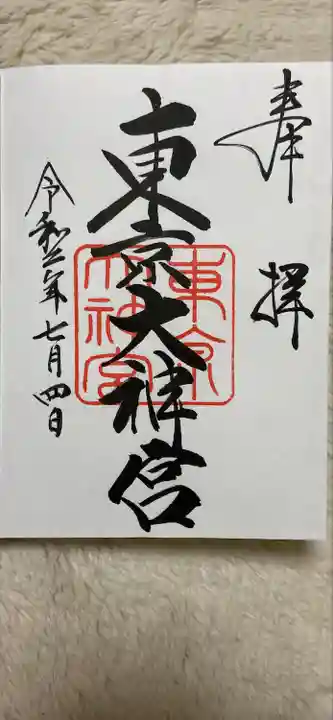 奉拝
東京大神宮
東京大神宮
令和五年七月四日